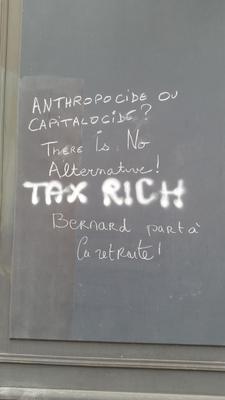 ANTHROPOCIDE OU
CAPITALOCIDE?
THERE Is No
Alternative!
TAX RICH
BERNARD part à
la retraite!